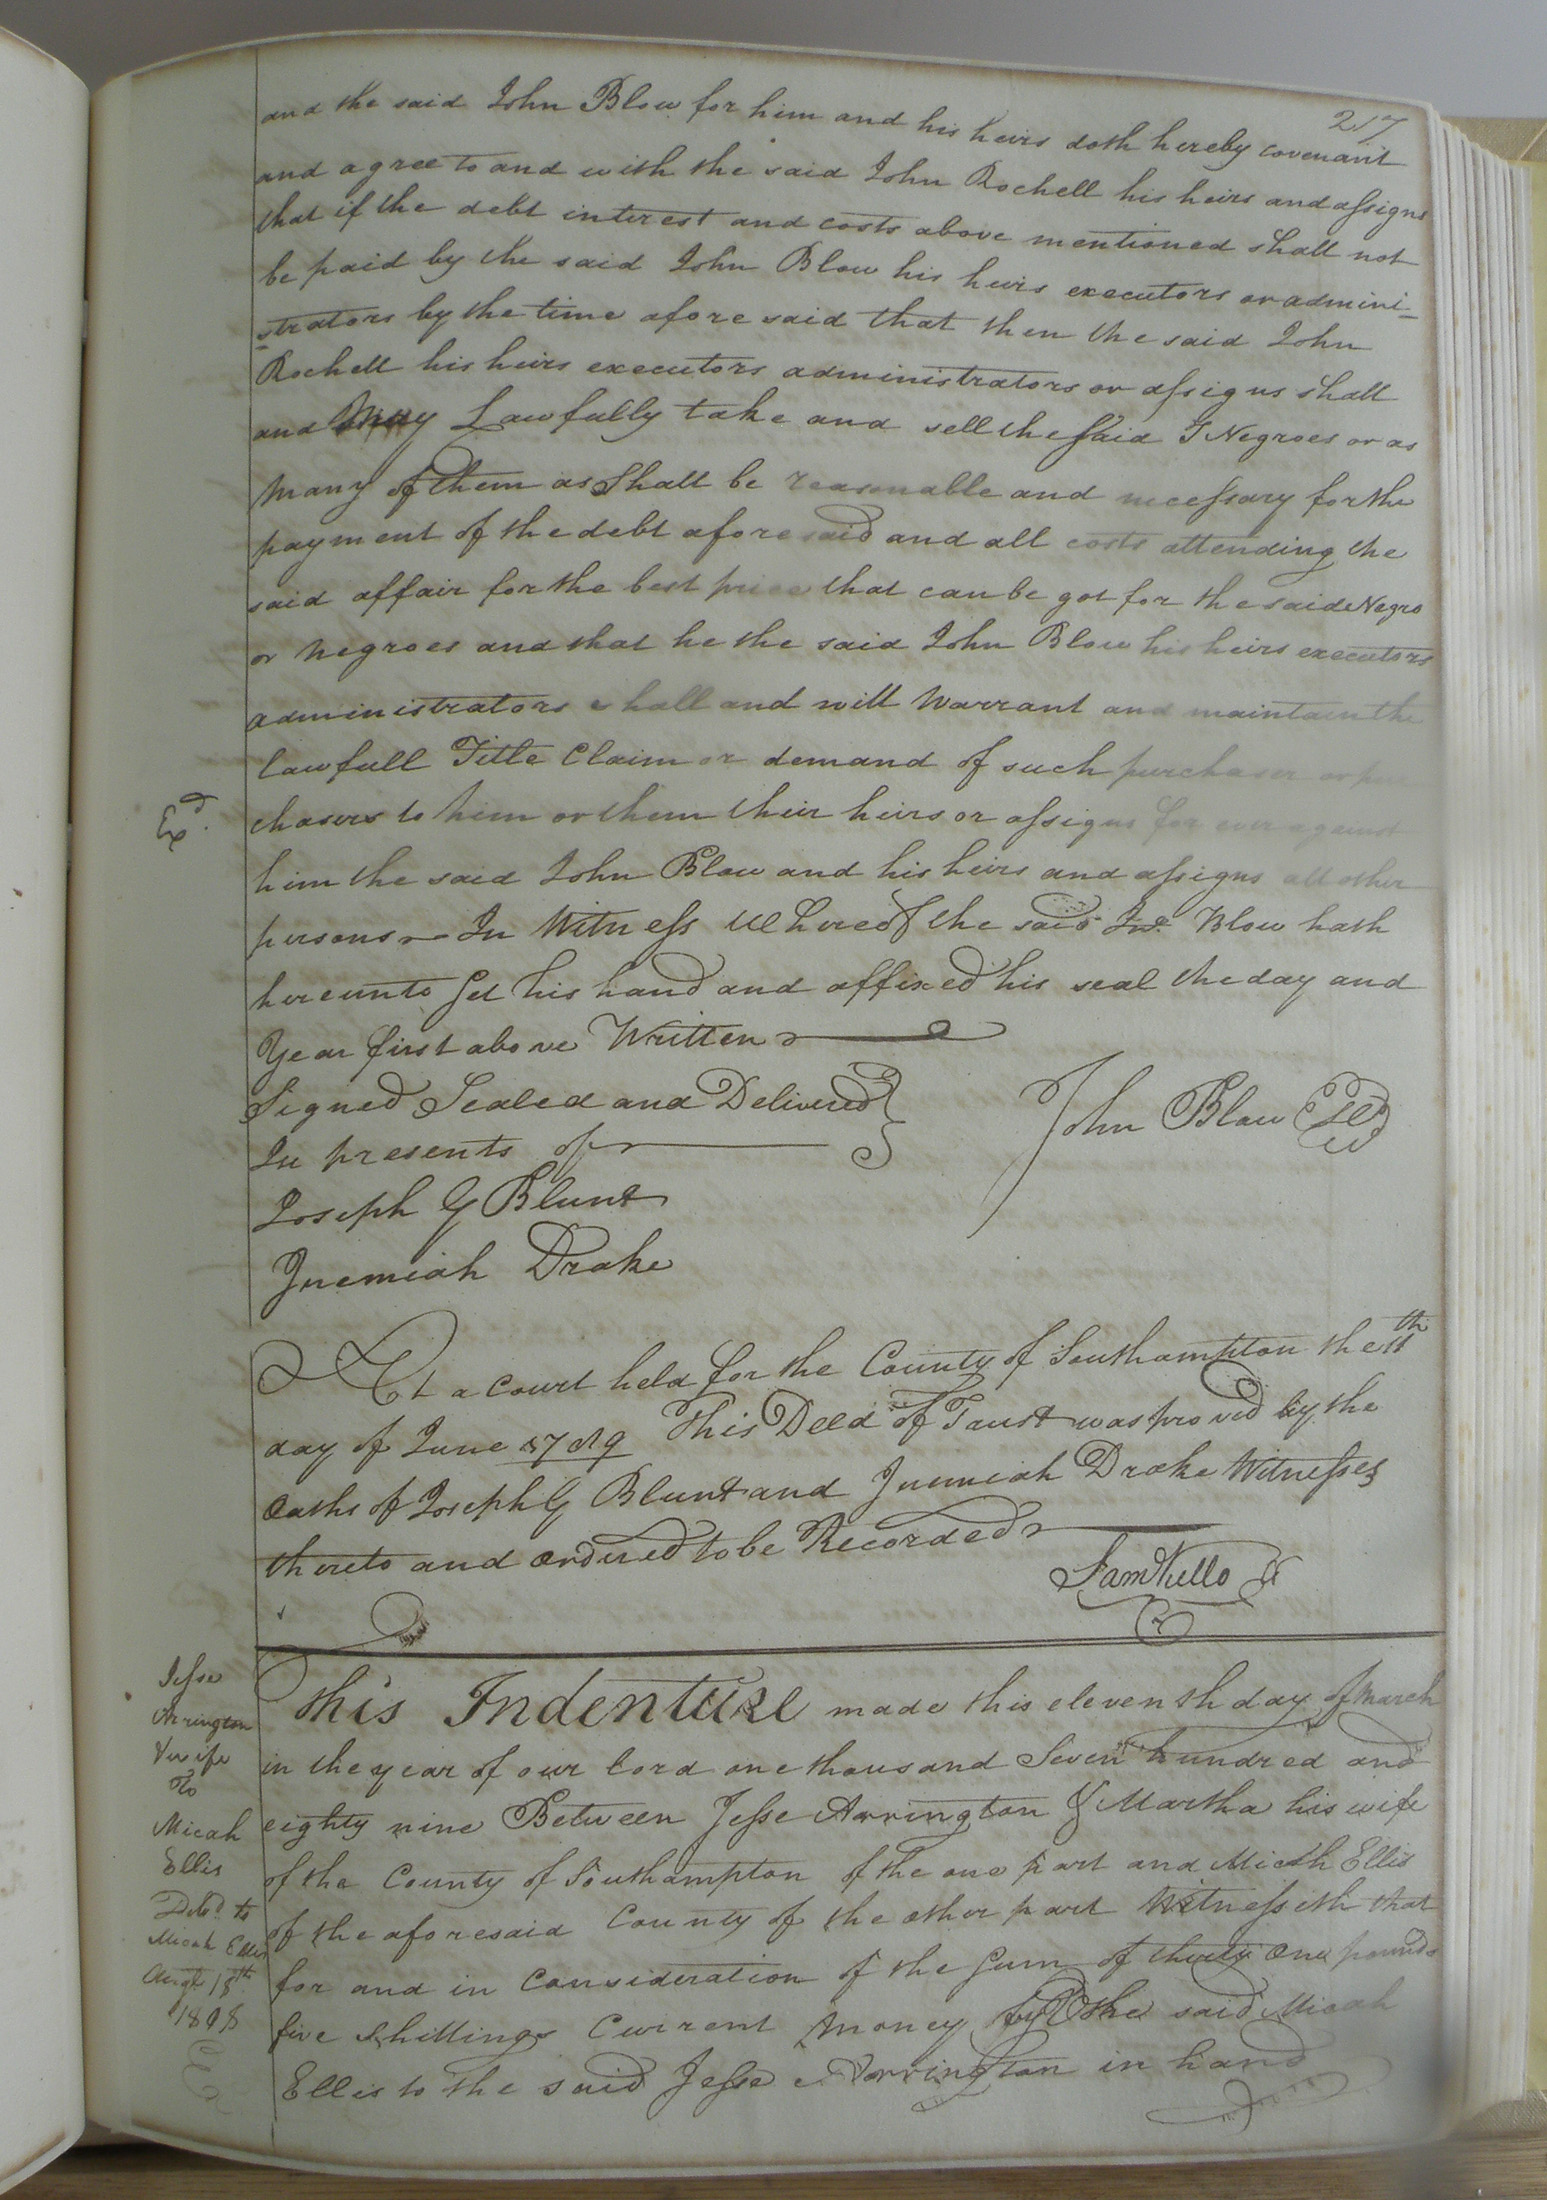 217
and the said John Blow for him and his heirs doth hereby covenant
and agree to and with the said John Rochell his heirs and assigns
that if the debt interest and costs above mentioned shall not
be paid by the said John Blow his heirs executors or admini-
-strators by the time afore said that then the said John
Rochell his heirs executors administrators or assigns shall
and May Lawfully take and sell the said Negroes or as
many of them as Shall be reasonable and necessary for the
payment of the debt aforesaid and all costs attending the
said affair for the best price that can be got for the said Negro
or negroes and that he the said John Blow his heirs executors
administrators shall and will Warrant and maintain the
lawfull Title Claim or demand of such purchaser or pur
Exd.
chasers to him or them their heirs or assigns for ever against
him the said John Blow and his heirs and assigns all other
persons In Witness Whereof the said Jno. Blow hath
hereunto Set his hand and affixed his seal the day and
Year first above Written
Signed Sealed and Delivered
John Blow
In presents of
Joseph G Blunt
Jeremiah Drake
At a Court held for the County of Southampton the 11th
day of June 1789 This Deed of Trust was proved by the
Oaths of Joseph G Blunt and Jeremiah Drake Witnesses
thereto and ordered to be Recorded
Sam Kello
Jesse
Arrington
& wife
To
Micah
Ellis
Deld. to
Micah Ellis
Augt. 18th.
This Indenture made this eleventh day of March
in the year of our lord one thousand Seven hundred and
eighty nine Between Jesse Arrington & Martha his wife
of the County of Southampton of the one part and Micah Ellis
of the aforesaid County of the other part Witnesseth that
for and in Consideration of the Sum of thirty One pounds
five Shillings Current Money by the said Micah
Ellis to the said Jesse Arrington in hand